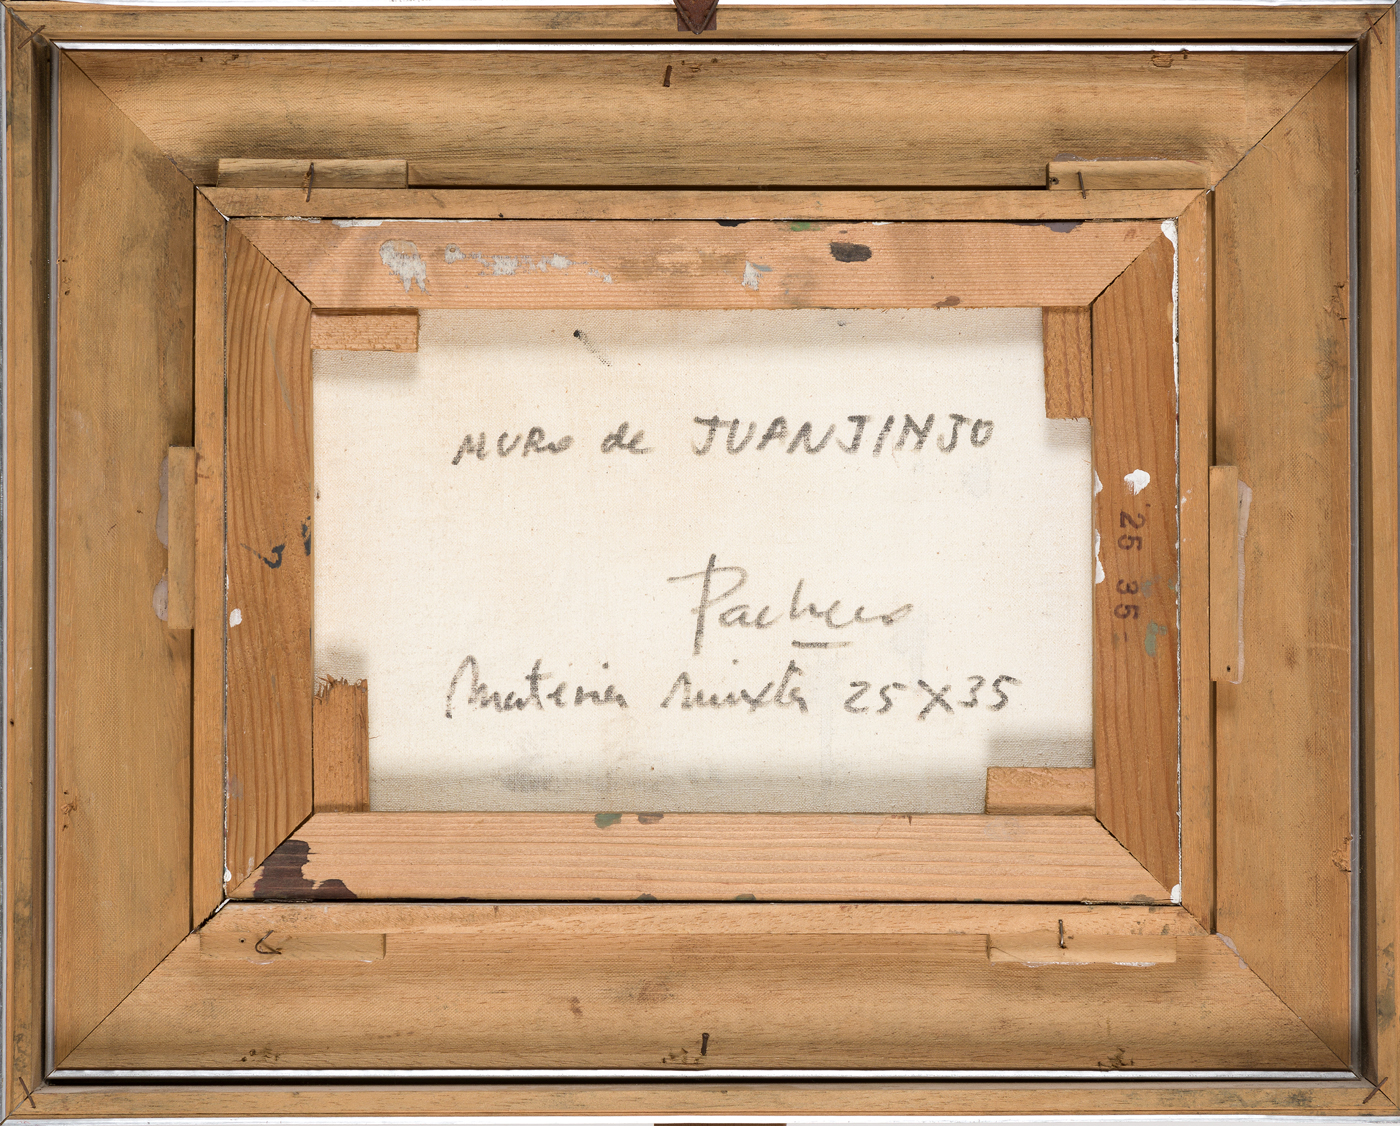 MURO de JUANJINJO
Pacheco
Materia mixta 25X35
25 35